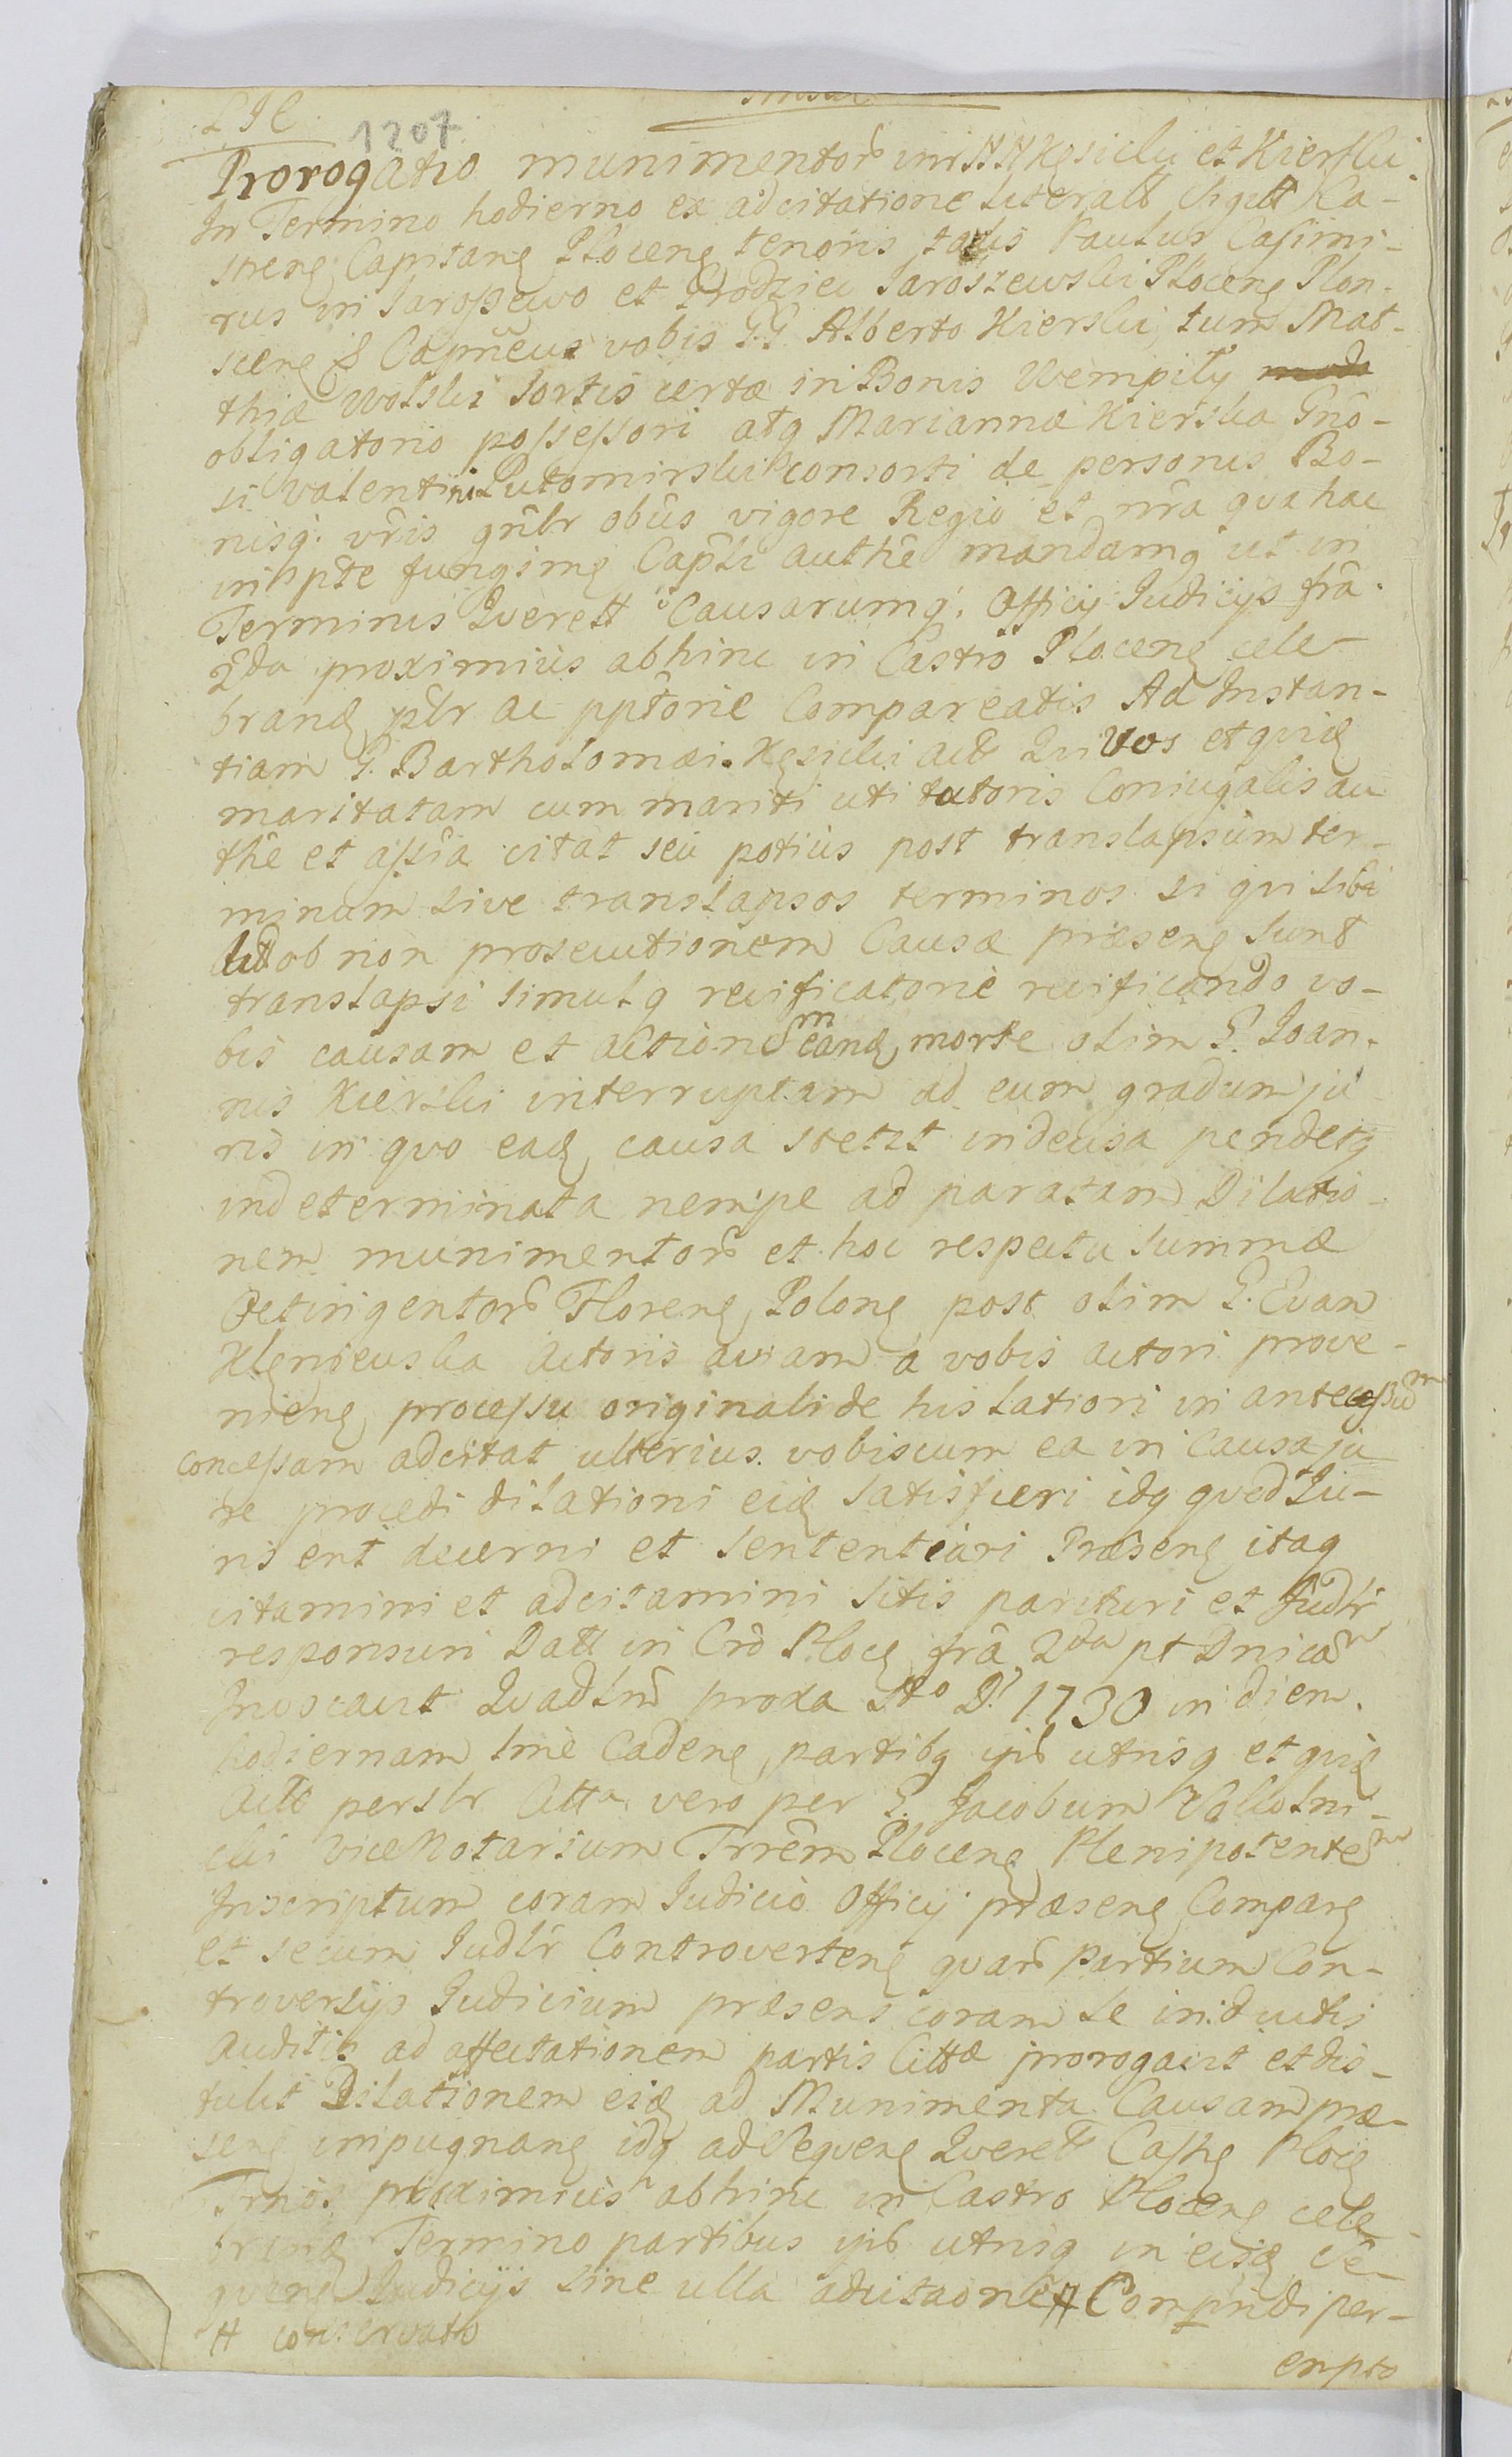 LIC
1207
Prorogatio munimentor̃ in Kęsicki et Kierski
In Termino hodierno ex adcitatione Literali Sigill Ca-
streng Capitang Ploceng tenoris talis Paulus Casimi-
rus in Jaroszewo et Brodzice Jaroszewski Ploceng Plon-
sceng & Capnĕus vobis G.G. Alberto Kierski, tum Mat-
thiæ Wolski Sortis certæ in Bonis Wempily
obligatorio possessori atq Mariannæ Kierska Gnõ-
si Valentini Lutomirski consorti de personis Bo-
nisq: vr̃is gnr̃lr obũs vigore Regio et nr̃a qua hac
in pte fungimg Capli authẽ mandamg ut in
Terminis Querell Causarumq: Officij Judicijs fr̃a
2da proximius abhinc in Castro Ploceng cele-
brand plr ac pptõrie Compareatis Ad Instan-
tiam G. Bartholomæi Kęsicki act Qui Vos et quid
maritatam cum mariti uti tutoris Coniugalis au
thẽ et assĩa citat seu potius post translapsum ter-
minum sive translapsos terminos si qui sibi
ob non prosecutionem Causæ præseng sunt
translapsi simulq revificatorie revificando vo-
bis causam et actionẽm eand morte olim G. Joan-
nis Kierski interruptam ad eum gradum ju
ris in quo ead causa stetit indecisa pendetq
indeterminata nempe ad paratam Dilatio-
nem munimentor̃ et hoc respectu Summæ
Octingentor̃ Floreng Polong post olim G. Evam
Klęniewska Actoris aviam a vobis actori prove-
nieng processu originali de his latiori in antecessũm
concessam adcitat ulterius vobiscum ea in causa ju
re procedi dilationi eid satisfieri idq quod Ju-
ris erit decerni et sententiari Præseng itaq
citamini et adcitamini sitis parituri et Judlr
responsuri Datt in Cro Ploc fr̃a 2da pt Dnicam
Invocavit Quadlm̃ proxa Ao D. 1730 in diem
hodiernam lme Cadeng partibq ipis utrisq et quid
Acto perslr Citta vero per G. Jacobum
cki ViceNotarium Trrem Ploceng Plenipotentem
Inscriptum coram Judicio Officij præseng Compareng
et secum Judlr Controverteng quar̃ partium Con-
troversijs Judicium præsens coram se inductis
Auditis ad affectationem partis Cittæ prorogavit et dis-
tulit Dilationem eid ad Munimenta Causam præ-
seng impugnang idq ad Sequeng Querell Castrg Plocg
Trnos proximius abhinc in Castro Ploceng cele-
brand Termino partibus ipis utrisq in eisd Se-
queng Judicijs sine ulla adcitaone # Comprndi per-
# conservato
empto